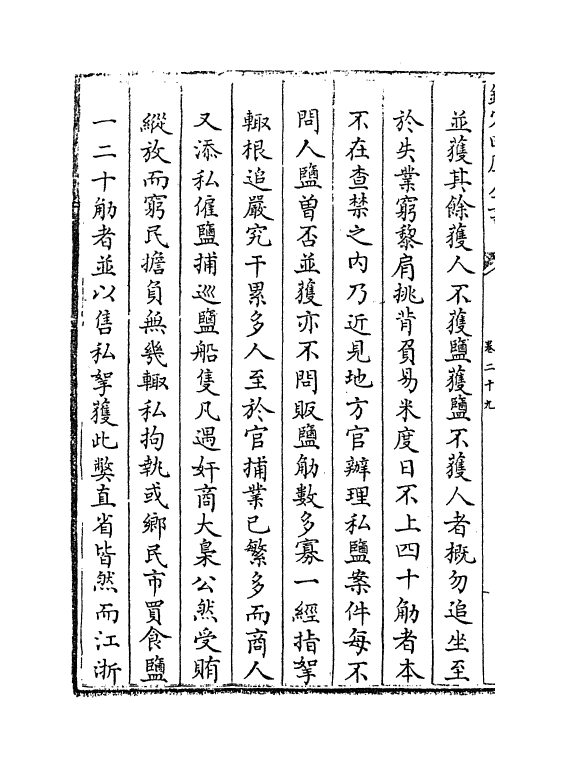 並獲其餘獲人不獲鹽獲鹽不獲人者概勿追坐至
於失業窮黎肩挑背負易米度日不上四十觔者本
不在查禁之内乃近見地方官辦理私鹽案件每不
問人鹽曽否並獲亦不問販鹽觔數多寡一經指拏
輙根追嚴究干累多人至於官捕業已繁多而商人
又添私僱鹽捕巡鹽船隻凡遇奸商大梟公然受賄
縱放而窮民擔負無幾輙私拘執或鄉民市買食鹽
一二十觔者並以售私拏獲此弊直省皆然而江浙
卷二十九